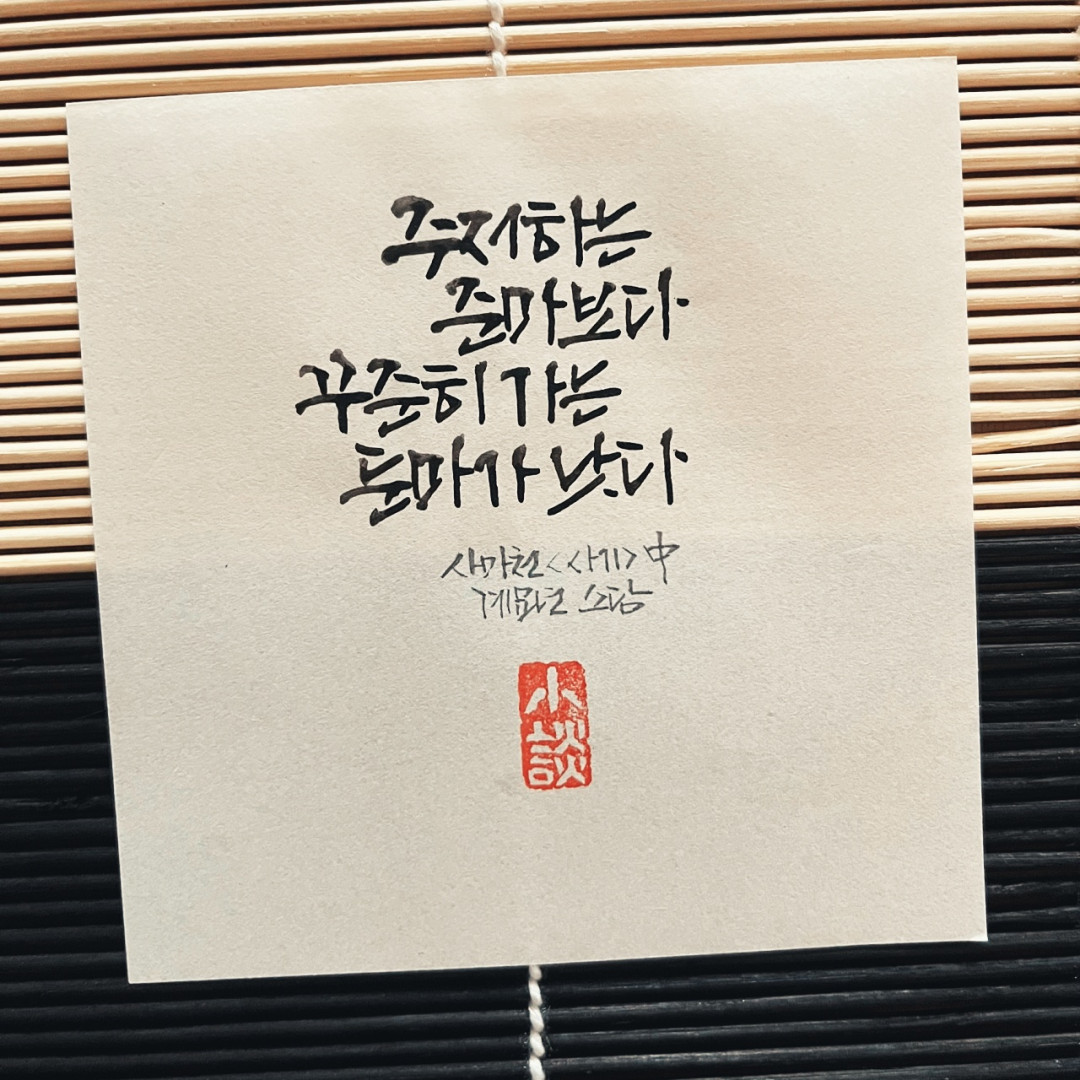 주저하는
준마보다
꾸준히 가는
둔마가 낫다
사마천 <사기> 中
계묘년 소담
小
談